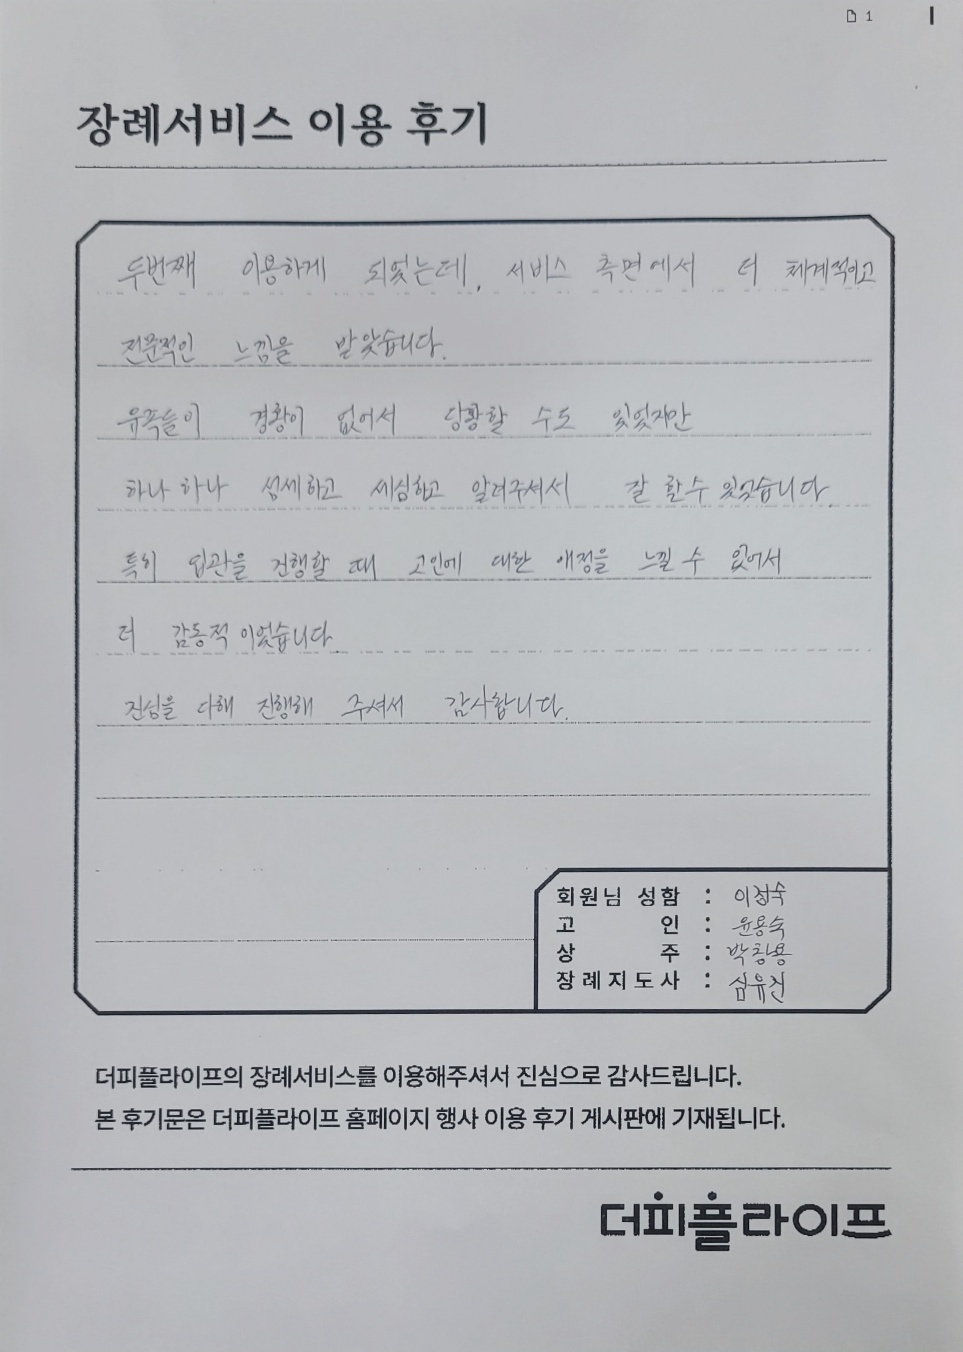 1
장례서비스 이용 후기
두번째 이용하게 되었는데, 서비스 측면에서 더 체계적이고
전문적인 느낌을 받았습니다.
유족들이 경황이 없어서 당황할 수도 있었지만
하나 하나 섬세하고 세심하고 알려주셔서 잘 할 수 있었습니다.
특히 입관을 진행할 때 고인에 대한 애정을 느낄 수 있어서
더 감동적 이었습니다.
진심을 다해 진행해 주셔서 감사합니다.
회원님 성함 : 이정숙
고 인 : 윤용숙
상 주 : 박창용
장례지도사 : 심유진
더피플라이프의 장례서비스를 이용해주셔서 진심으로 감사드립니다.
본 후기문은 더피플라이프 홈페이지 행사 이용 후기 게시판에 기재됩니다.
더피플라이프